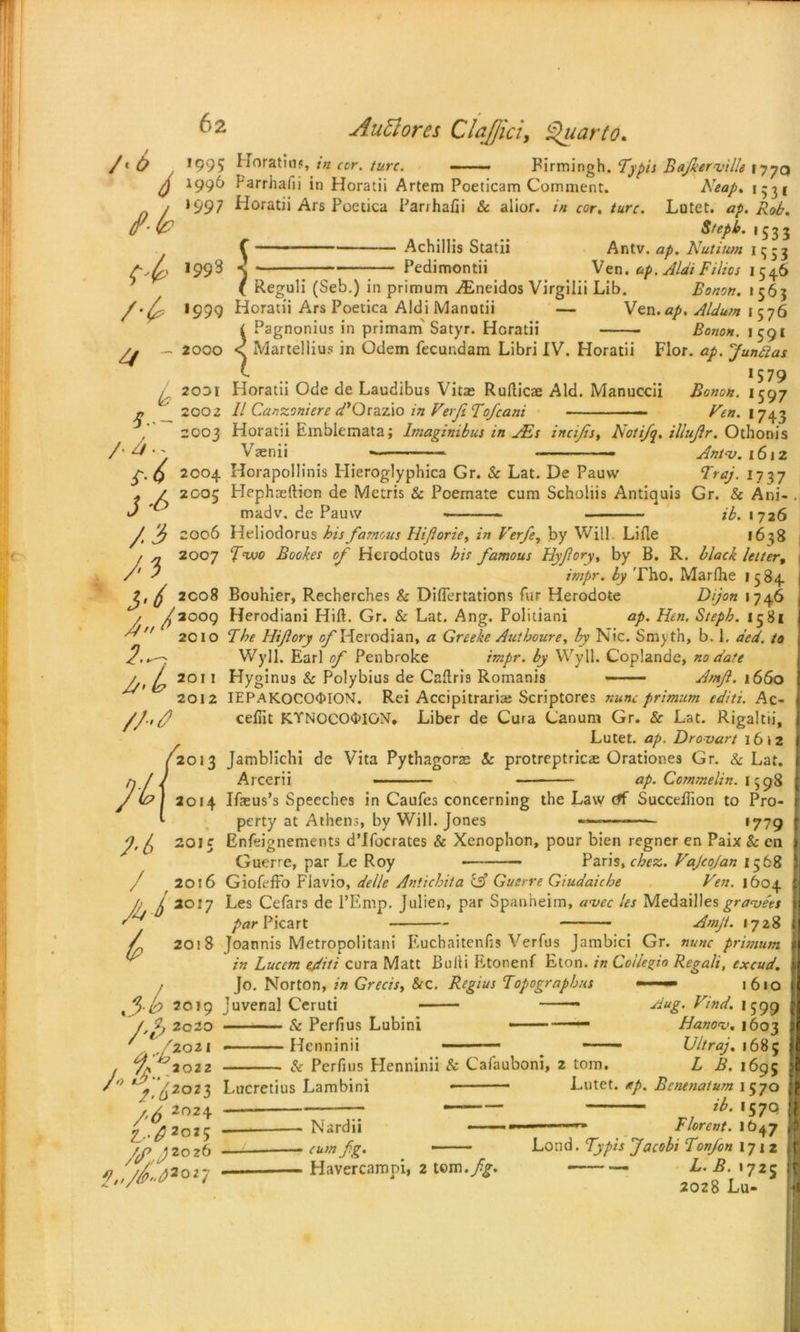 62 Auctores Claſſici, Quarto.
/‧6 1995 Horatius, in cor. turc. —— Birmingh. Typis Baſkerville 1770
1996 Parrhaſii in Horatii Artem Poeticam Comment. Neap. 1531
1997 Horatii Ars Poetica Parrhaſii & alior. in cor. turc. Lutet. ap. Rob.
Steph. 1533
{ —— Achillis Statii Antv. ap. Nutium 1553
1998 —— Pedimontii Ven. ap. Aldi Filios 1546
Reguli (Seb.) in primum Æneidos Virgilii Lib. Bonon. 1563
1999 Horatii Ars Poetica Aldi Manutii — Ven. ap. Aldum 1576
{ Pagnonius in primam Satyr. Horatii —— Bonon. 1591
4 - 2000 Martellius in Odem ſecundam Libri IV. Horatii Flor. ap. Junctas
1579
2001 Horatii Ode de Laudibus Vitæ Ruſticæ Ald. Manuccii Bonon. 1597
2002 Il Canzoniere d'Orazio in Verſi Toſcani —— Ven. 1743
2003 Horatii Emblemata; Imaginibus in Æs inciſis, Notiſq. illuſtr. Othonis
Vænii —— —— Antv. 1612
5‧6 2004 Horapollinis Hieroglyphica Gr. & Lat. De Pauw Traj. 1737
3‧6 2005 Hephæſtion de Metris & Poemate cum Scholiis Antiquis Gr. & Ani-
madv. de Pauw —— —— ib. 1726
/‧3 2006 Heliodorus his famous Hiſtorie, in Verſe, by Will. Liſle 1638
/‧3 2007 Two Bookes of Herodotus his famous Hyſtory, by B. R. black letter,
impr. by Tho. Marſhe 1584
3‧6 2008 Bouhier, Recherches & Diſſertations ſur Herodote Dijon 1746
2009 Herodiani Hiſt. Gr. & Lat. Ang. Politiani ap. Hen. Steph. 1581
2010 The Hiſtory of Herodian, a Greeke Authoure, by Nic. Smyth, b. l. ded. to
Wyll. Earl of Penbroke impr. by Wyll. Coplande, no date
2011 Hyginus & Polybius de Caſtris Romanis —— Amſt. 1660
2012 ΙΕΡΑΚΟΣΟΦΙΟΝ. Rei Accipitrariæ Scriptores nunc primum editi. Ac-
ceſſit ΚΥΝΟΣΟΦΙΟΝ. Liber de Cura Canum Gr. & Lat. Rigaltii,
Lutet. ap. Drovart 1612
{ 2013 Jamblichi de Vita Pythagoræ & protreptricæ Orationes Gr. & Lat.
Arcerii —— —— ap. Commelin. 1598
2014 Iſæus's Speeches in Cauſes concerning the Law of Succeſſion to Pro-
perty at Athens, by Will. Jones —— 1779
7‧6 2015 Enſeignements d'Iſocrates & Xenophon, pour bien regner en Paix & en
Guerre, par Le Roy —— Paris, chez. Vaſcoſan 1568
/ 2016 Gioſeffo Flavio, delle Antichita & Guerre Giudaiche Ven. 1604
2017 Les Ceſars de l'Emp. Julien, par Spanheim, avec les Medailles gravées
par Picart —— —— Amſt. 1728
2018 Joannis Metropolitani Euchaitenſis Verſus Jambici Gr. nunc primum
in Lucem editi cura Matt Buſti Etonenſ Eton. in Collegio Regali, excud.
Jo. Norton, in Grecis, &c. Regius Topographus —— 1610
3‧6 2019 Juvenal Ceruti —— —— Aug. Vind. 1599
2020 —— & Perſius Lubini —— Hanov. 1603
2021 —— Henninii —— —— Ultraj. 1685
2022 —— & Perſius Henninii & Caſauboni, 2 tom. L B. 1695
2023 Lucretius Lambini —— Lutet. ap. Benenatum 1570
/‧6 2024 —— —— —— ib. 1570
2025 —— Nardii —— Florent. 1647
2026 —— cum fig. —— Lond. Typis Jacobi Tonſon 1712
2027 —— Havercampi, 2 tom. fig. —— L. B. 1725
2028 Lu-